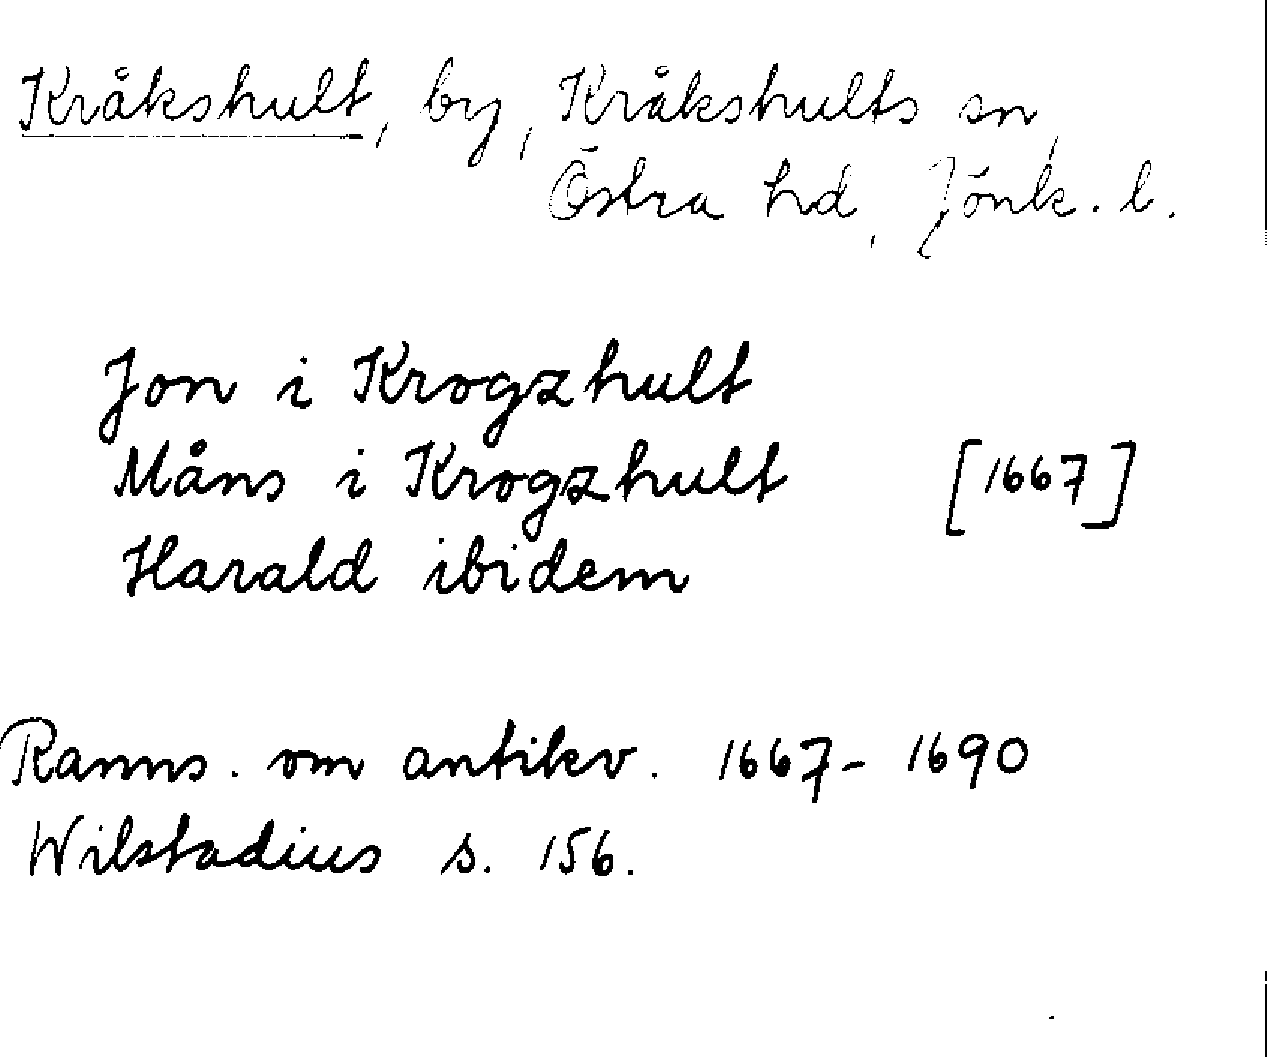 Kråkshult, by, Kråkshults sn,
Östra hd, Jönk. l.
Jon i Krogzhult
Måns i Krogzhult [1667]
Harald ibidem
Ranns. om antikv. 1667-1690
Wilstadius s. 156.